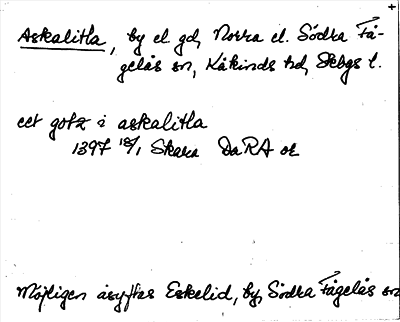 Askalitla, by el gd, Norra el. Södra Få-
gelås sn, Kåkinds hd, Skbgs l.
eet gotz i askalitla
1397 18/1 Skara DaRA or
Möjligen åsyftas Eskelid, by, Södra Fågelås sn